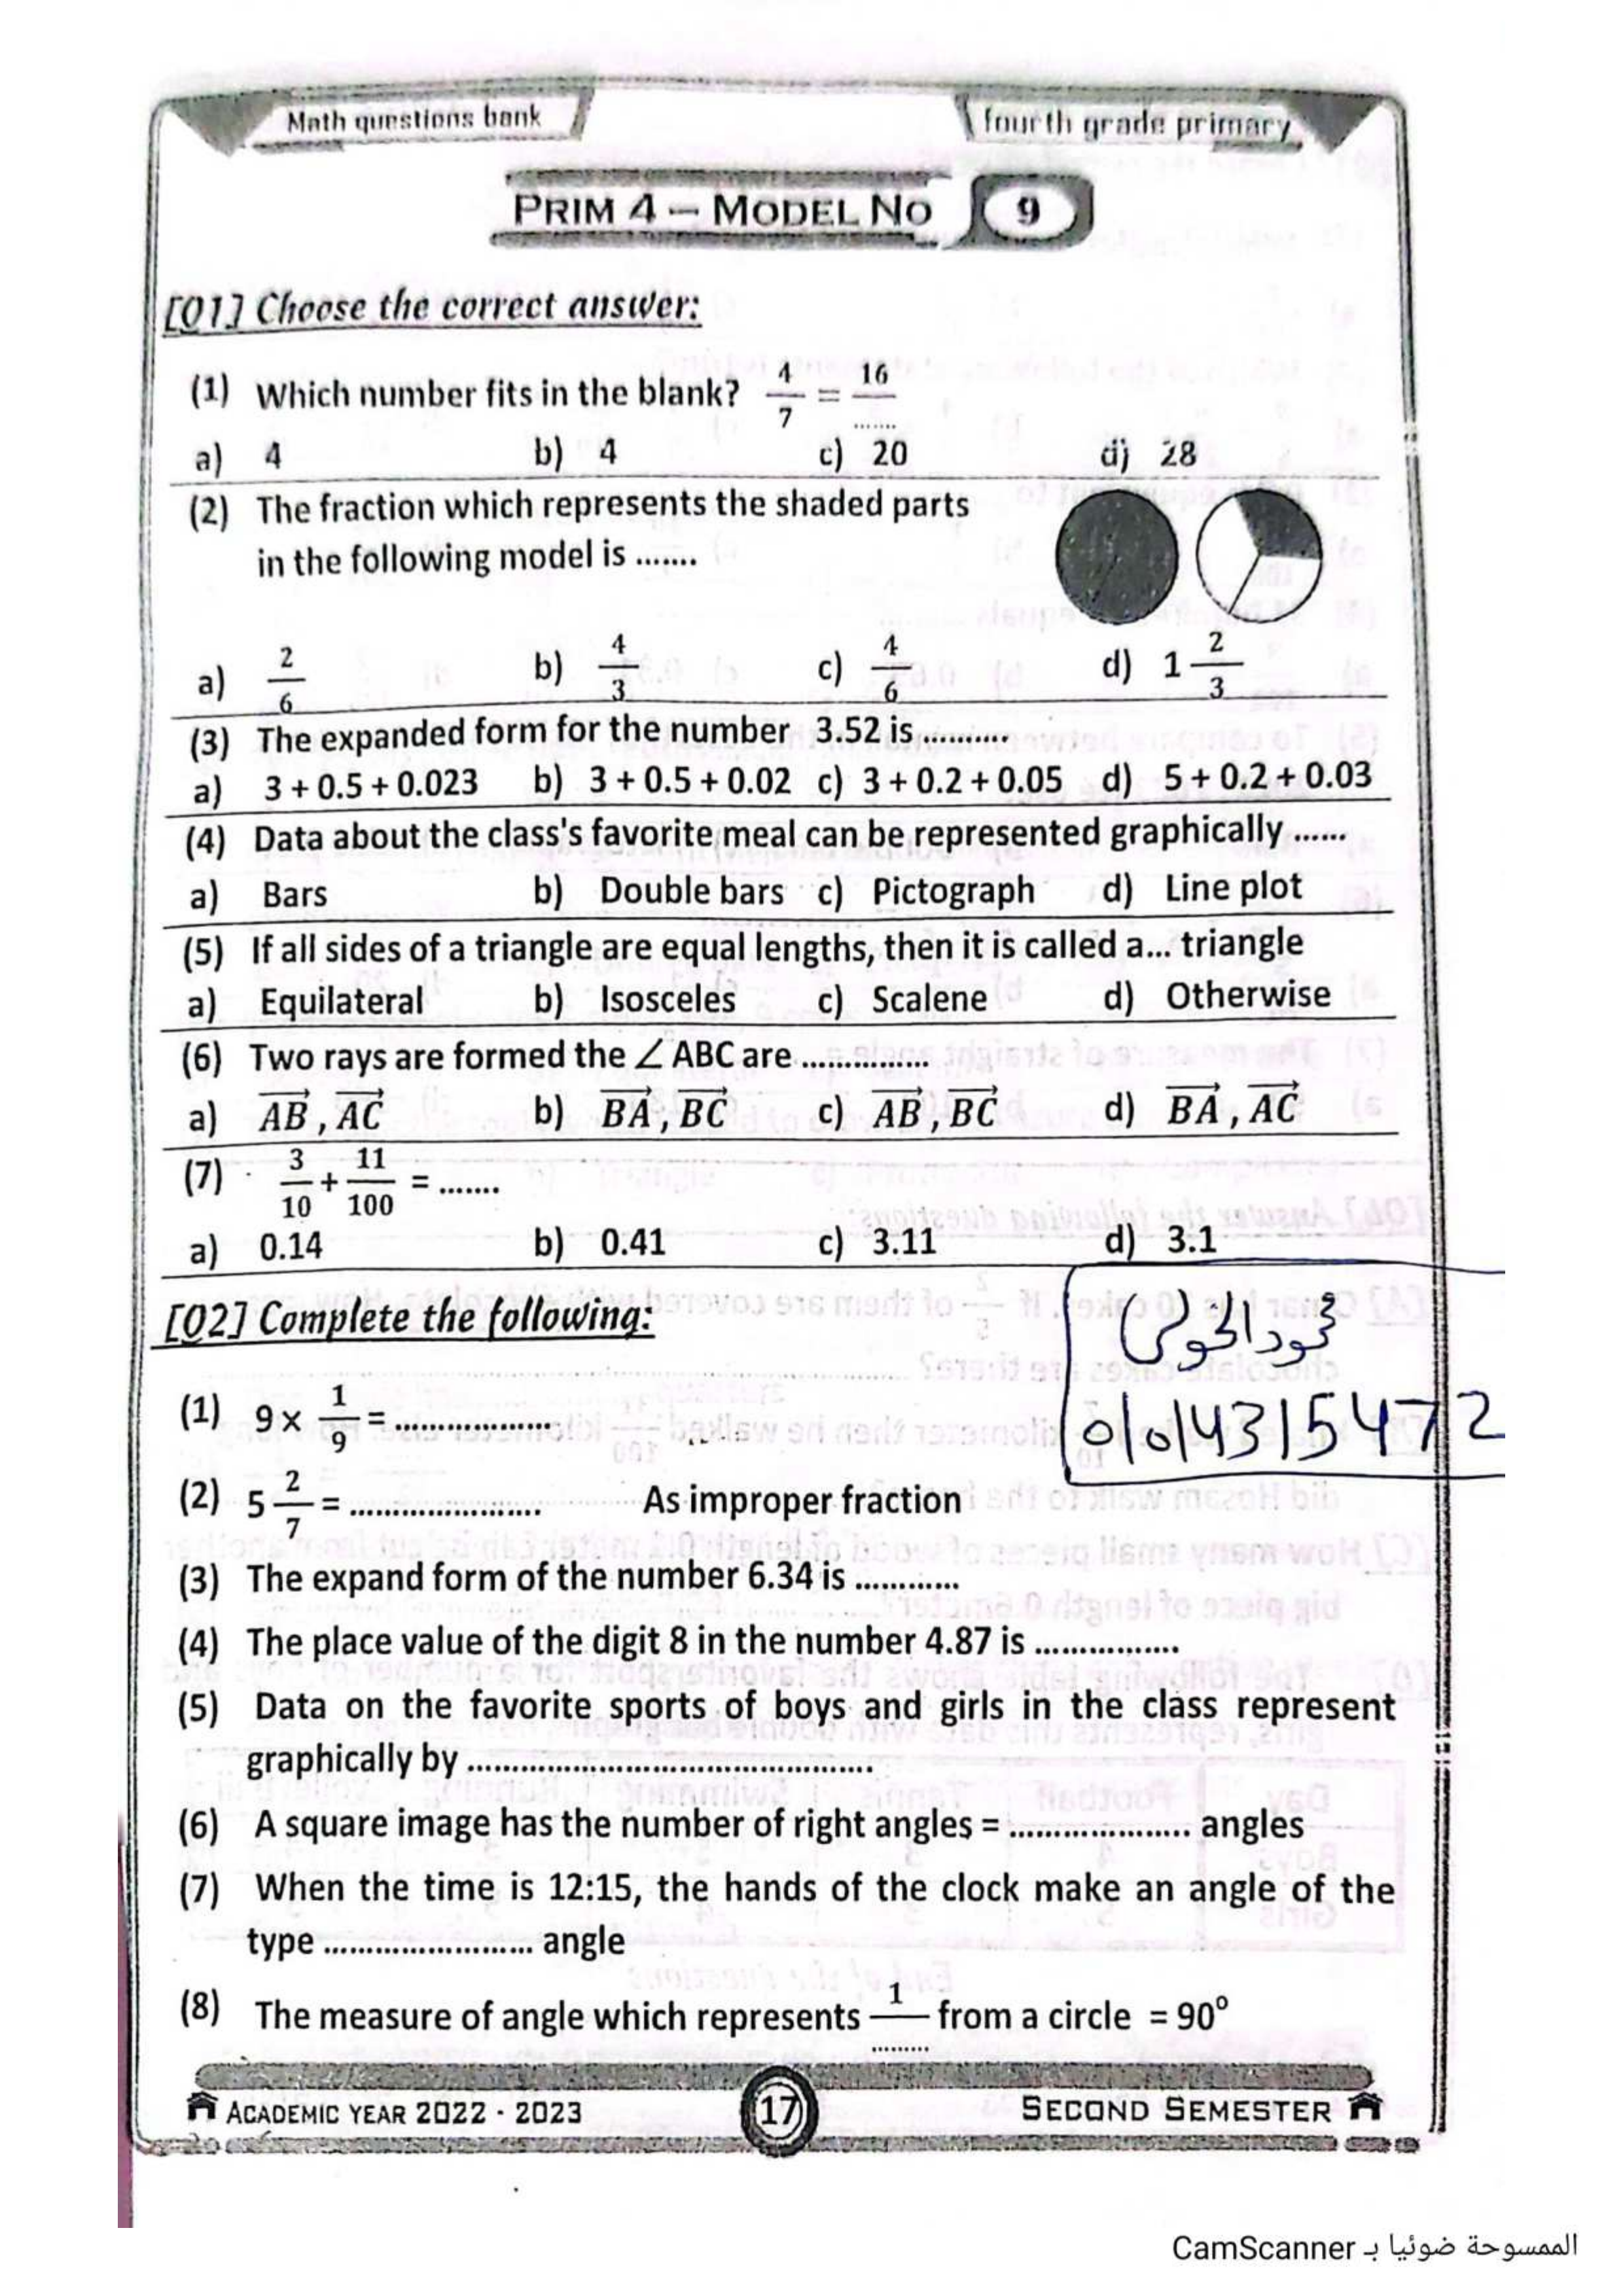 Math questions bank
fourth grade primary
PRIM 4 – MODEL NO 9
[Q1] Choose the correct answer:
(1) Which number fits in the blank? 4/7 = 16/.......
a) 4 b) 4 c) 20 d) 28
(2) The fraction which represents the shaded parts
in the following model is .......
a) 2/6 b) 4/3 c) 4/6 d) 1 2/3
(3) The expanded form for the number 3.52 is............
a) 3 + 0.5 + 0.023 b) 3 + 0.5 + 0.02 c) 3 + 0.2 + 0.05 d) 5 + 0.2 + 0.03
(4) Data about the class's favorite meal can be represented graphically ......
a) Bars b) Double bars c) Pictograph d) Line plot
(5) If all sides of a triangle are equal lengths, then it is called a... triangle
a) Equilateral b) Isosceles c) Scalene d) Otherwise
(6) Two rays are formed the ∠ ABC are................
a) AB , AC b) BA , BC c) AB , BC d) BA , AC
(7) 3/10 + 11/100 = .......
a) 0.14 b) 0.41 c) 3.11 d) 3.1
[Q2] Complete the following:
01014315472
(1) 9 × 1/9 = ...................
(2) 5 2/7 = ....................... As improper fraction
(3) The expand form of the number 6.34 is ............
(4) The place value of the digit 8 in the number 4.87 is .................
(5) Data on the favorite sports of boys and girls in the class represent
graphically by ................................................
(6) A square image has the number of right angles = ..................... angles
(7) When the time is 12:15, the hands of the clock make an angle of the
type ......................... angle
(8) The measure of angle which represents 1/......... from a circle = 90°
ACADEMIC YEAR 2022 - 2023
17
SECOND SEMESTER
الممسوحة ضوئيا بـ CamScanner